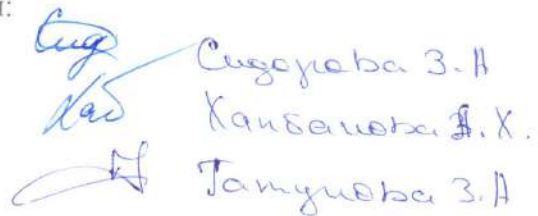 Сид Сидорова З.А
Хан Ханбанова Х.
Татунова З.А